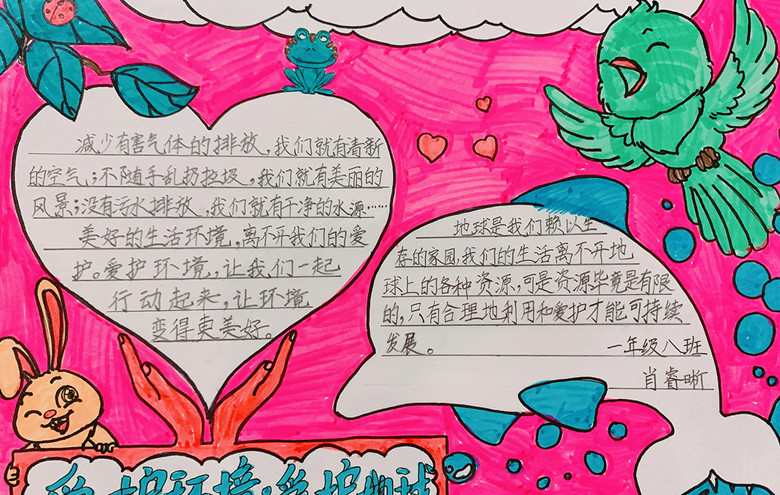 减少有害气体的排放，我们就有清新
的空气；不随手乱扔垃圾，我们就有美丽的
风景；没有污水排放，我们就有干净的水源……
美好的生活环境，离不开我们的爱
护。爱护环境，让我们一起
行动起来，让环境
变得更美好。
地球是我们赖以生
存的家园，我们的生活离不开地
球上的各种资源，可是资源毕竟是有限
的，只有合理地利用和爱护才能可持续
发展。
一年级八班
肖睿晰
爱护环境·爱护地球